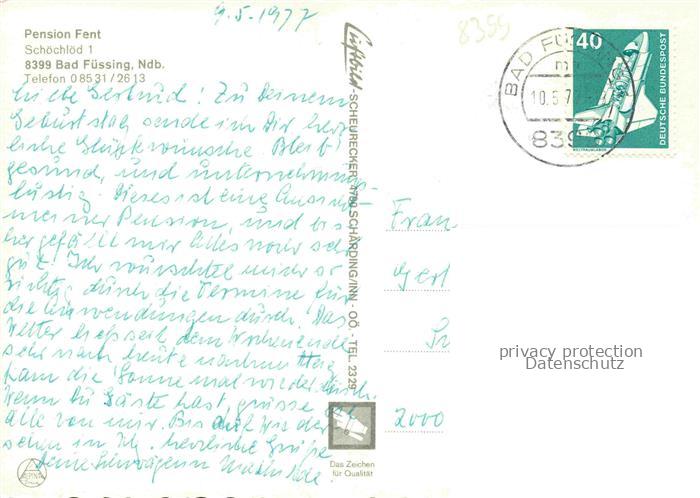 9.5.1977
8399
Pension Fent
Schöchlöd 1
8399 Bad Füssing, Ndb.
Telefon 08531/2613
Liebe Gertrud! Zu Deinem
Geburtstag sende ich Dir herz
liche Glückwünsche. Bleib
gesund, und unternehmungs-
lustig. Dieses ist eine Ansicht
meiner Pension, und bis
her gefällt mir Alles noch sehr
gut. Ich wurschtel mich so
richtig durch die Termine für
die Anwendungen durch. Das
Wetter ließ seit dem Wochenende
sehr nach heute nachm
kam die Sonne mal wieder durch.
Wenn Du Gäste hast, grüsse
alle von mir. Bis auf wieder
sehen in herzliche Grüße
Deine Schwägerin
Luftbild-SCHEURECKER, 4780 SCHÄRDING/INN - OÖ. - TEL. 2329
Das Zeichen
für Qualität
ALPINA
BAD FÜ
10.5.7
839
40
DEUTSCHE BUNDESPOST
WELTRAUMLABOR
Frau
Gert
2000
privacy protection
Datenschutz